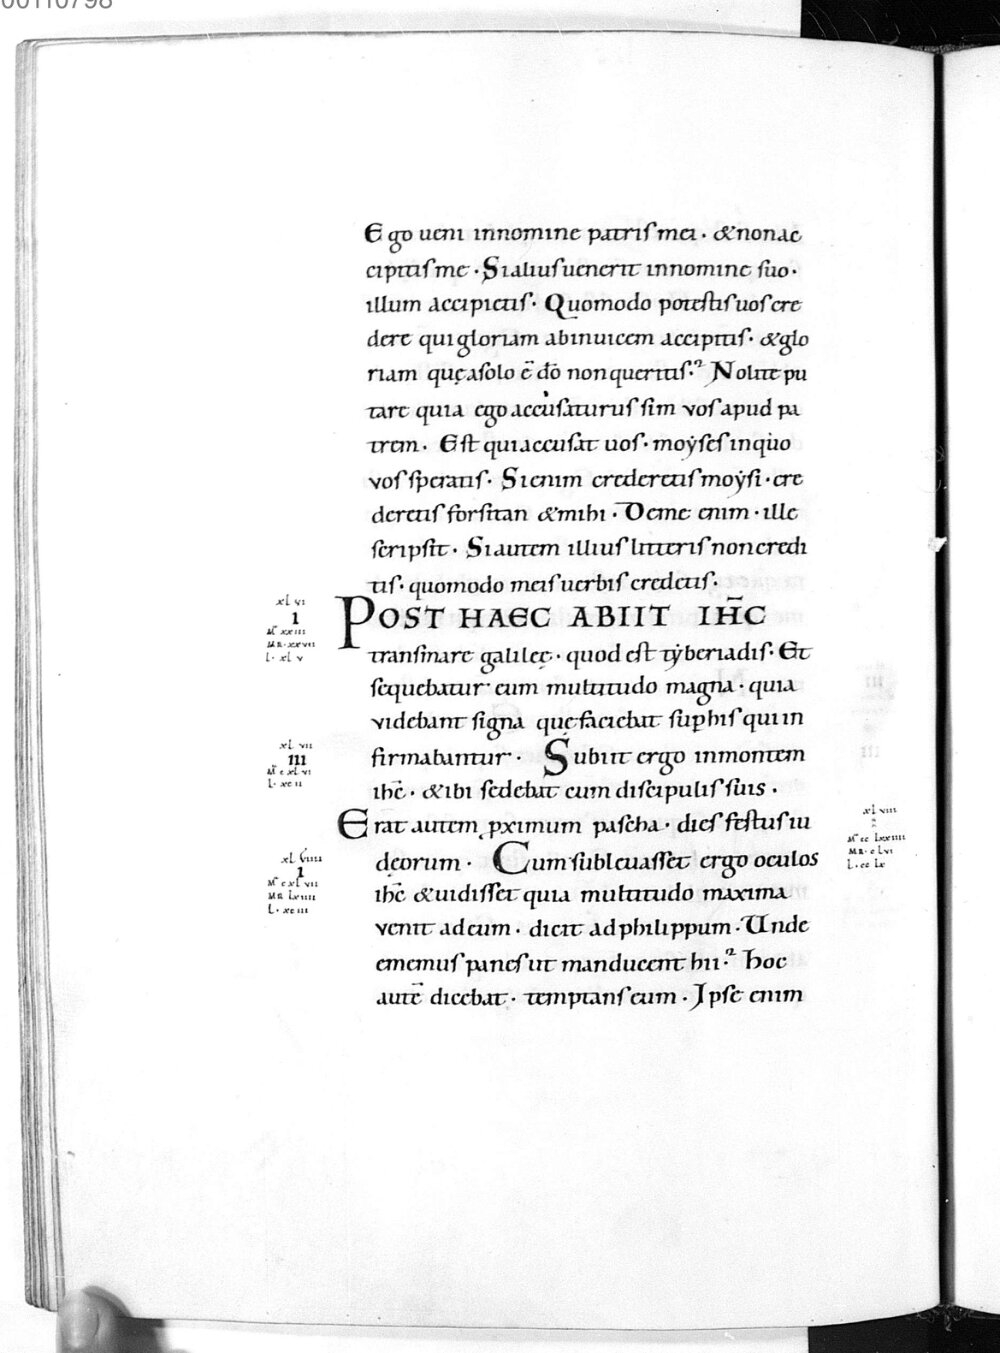 00110798
Ego ueni innomine patris mei · &nonac
cipitis me · Sialius uenerit innomine suo ·
illum accipietis · Quomodo potestis uos cre
dere qui gloriam abinuicem accipitis · &glo
riam quę asolo ē dō non queritis · Nolite pu
tare quia ego accusaturus sim vos apud pa
trem · Est qui accusat uos · moẏses inquo
vos speratis · Sienim crederetis moẏsi · cre
deretis forsitan &mihi · Deme enim · ille
scripsit · Siautem illius litteris non credi
tis · quomodo meis uerbis credetis ·
POST HAEC ABIIT IHC̄
transmare galileę · quod est tẏberiadis · Et
sequebatur eum multitudo magna · quia
videbant signa quę faciebat sup his qui in
firmabantur · Subiit ergo inmontem
ihc̄ · &ibi sedebat cum discipulis suis ·
Erat autem pximum pascha · dies festus iu
dęorum · Cum subleuasset ergo oculos
ihc̄ &uidisset quia multitudo maxima
venit adeum · dicit adphilippum · Unde
ememus panes ut manducent hii · Hoc
autē dicebat · temptans eum · Ipse enim
xl vi
I
M xxiii
MR · xxvii
L · xl v
xl vii
III
M c xl vi
L · xc ii
xl viiii
I
M c xl vii
MR lxiiii
L · xc iii
xl viii
2
M cc lxxiiii
MR · c lvi
L · cc lx